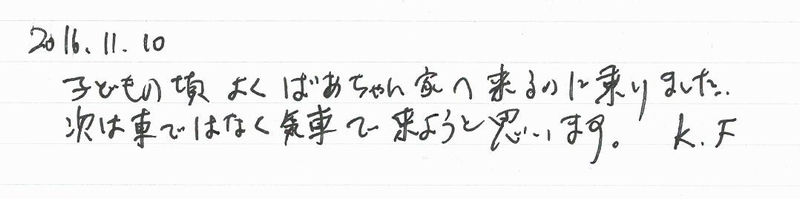 2016.11.10
子どもの頃 よく ばあちゃん家へ 来るのに乗りました.
次は車ではなく気車で 来ようと思います。 K.F